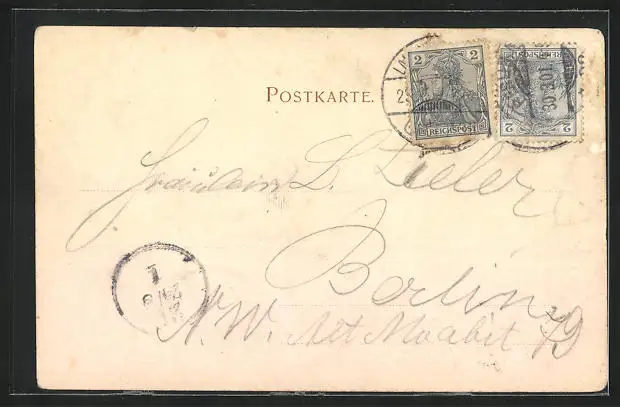 2
REICHSPOST
2
REICHSPOST
30.3.01.
POSTKARTE.
Fräulein L.
Berlin
N.W. Alt Moabit 79